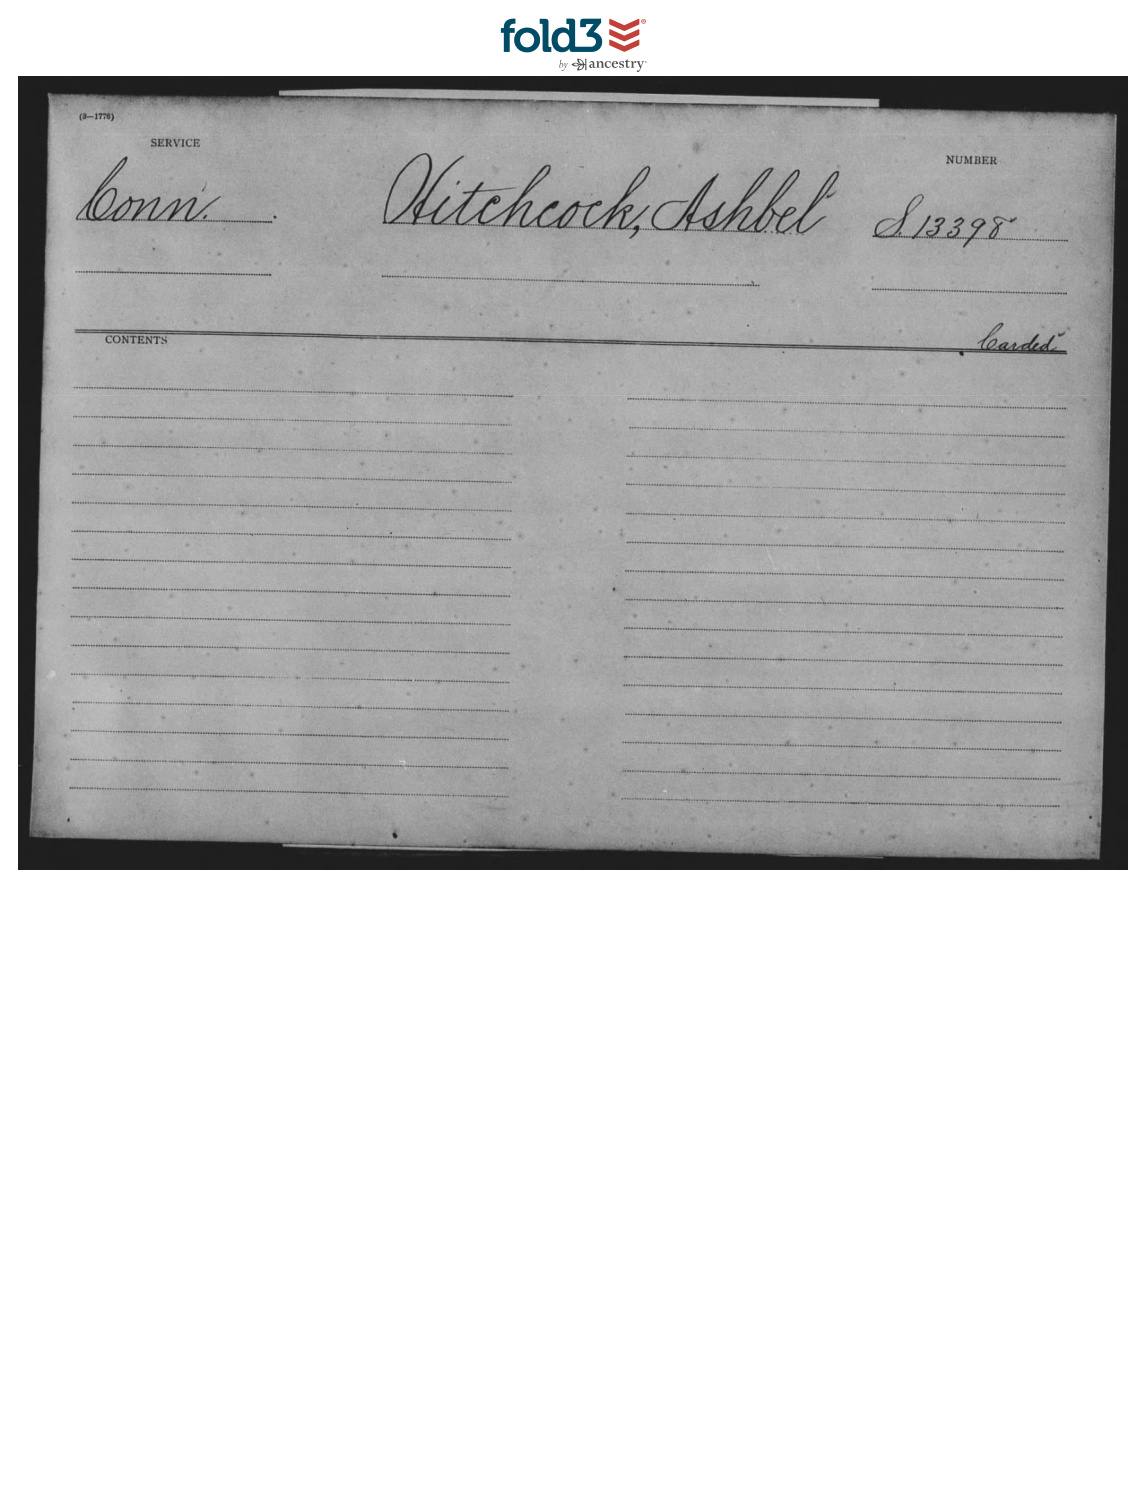 fold3
by ancestry
(3—1776)
SERVICE
NUMBER
Conn. Hitchcock, Ashbel S. 13398
CONTENTS
Carded